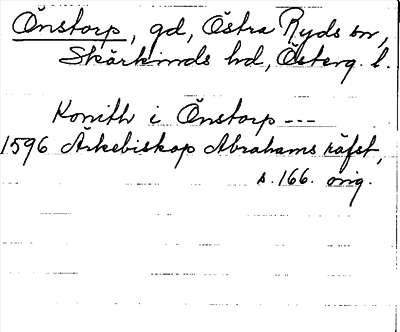 Önstorp, gd, Östra Ryds sn,
Skärkinds hd, Österg. l.
Konith i Önstorp ---
1596 Ärkebiskop Abrahams räfst,
s. 166. orig.